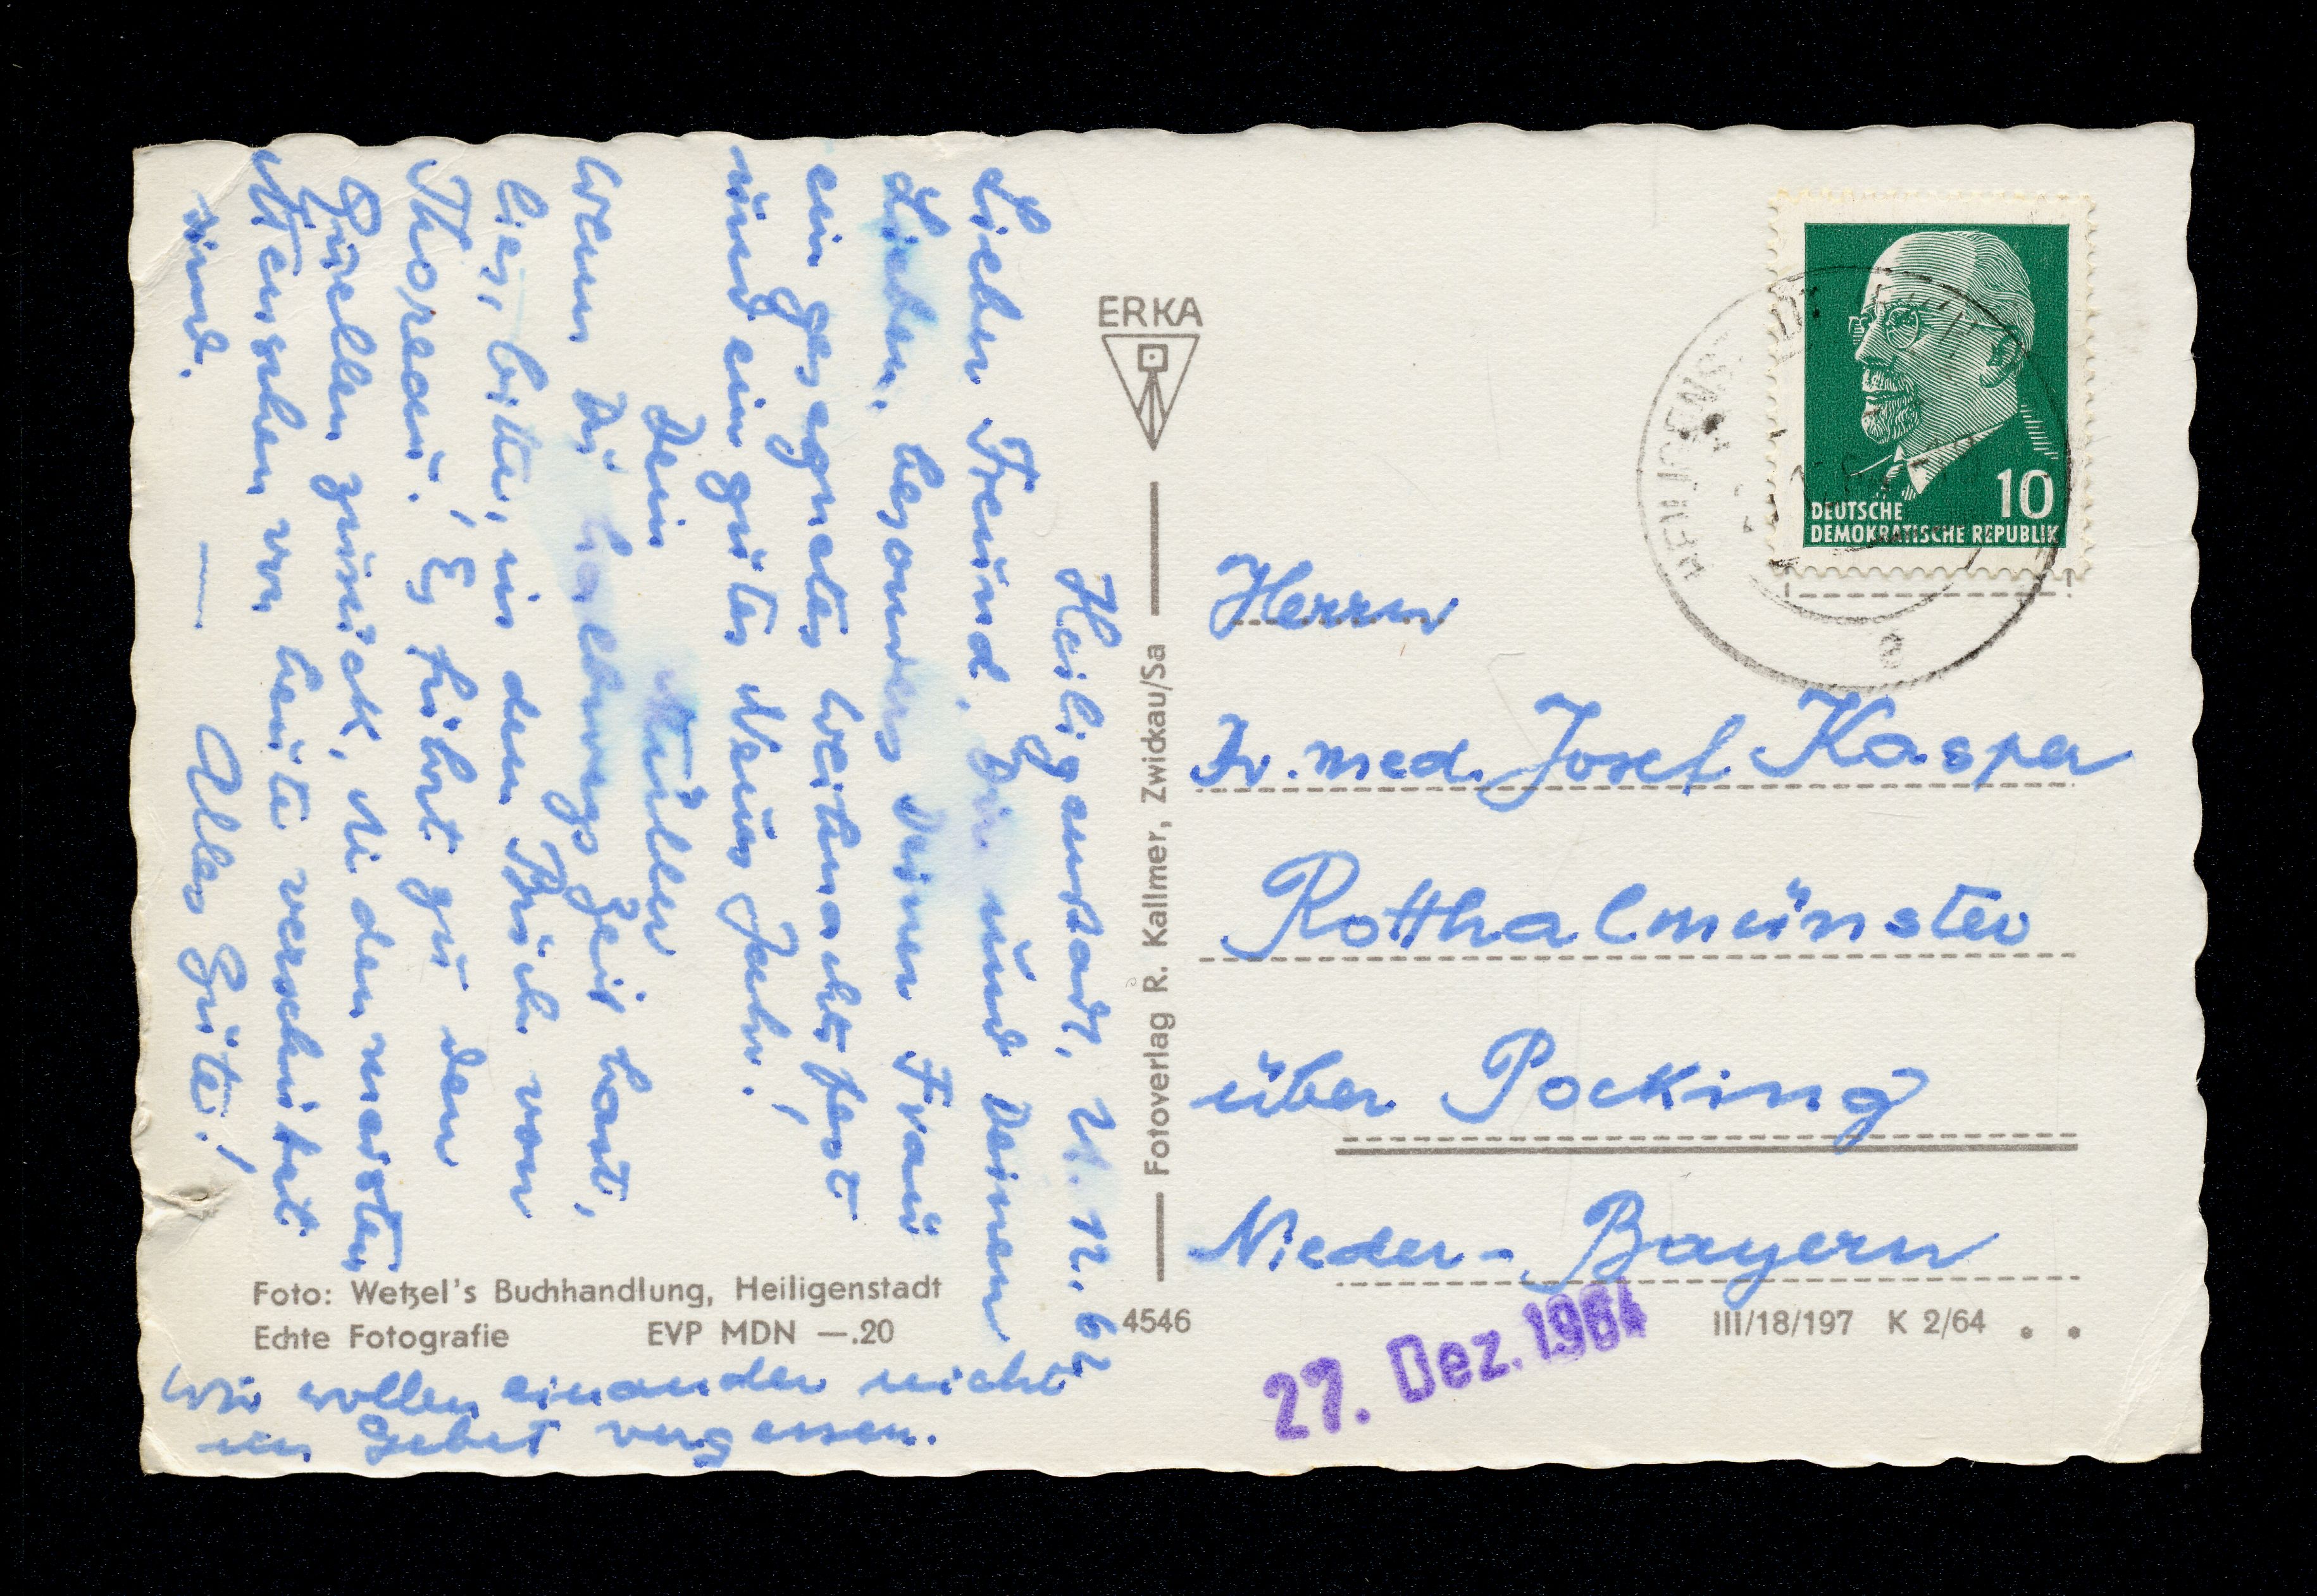 Heiligenstadt, 21.12.64
Lieber Freund, Dir und Deinen
Lieben, besonders Deiner Frau
ein gesegnetes Weihnachtsfest
und ein gutes Neues Jahr!
Dein Müller
Wenn Du halbwegs Zeit hast,
lies, bitte, in den Büchern von
Thoreau! Es führt zu den
Quellen zurück, die den meisten
Menschen von heute verschüttet
sind. — Alles Gute!
Wir wollen einander nicht
im Gebet vergessen.
Foto: Wetzel's Buchhandlung, Heiligenstadt
Echte Fotografie EVP MDN —.20
ERKA
Fotoverlag R. Kallmer, Zwickau/Sa
4546
10
DEUTSCHE
DEMOKRATISCHE REPUBLIK
HEILIGENSTADT
e
Herrn
Dr. med. Josef Kasper
Rotthalmünster
über Pocking
Nieder-Bayern
27. Dez. 1964
III/18/197 K 2/64